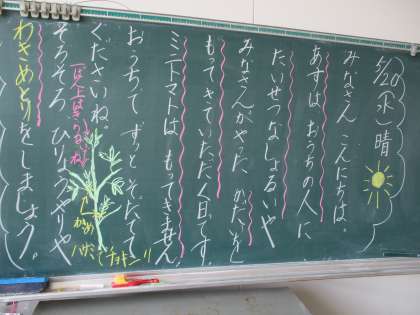 5/20(水)晴
みなさん こんにちは。
あすは おうちの人に
たいせつな しょるいや
みなさんがやった かだいを
もってきていただく日です。
ミニトマトは もってきません。
おうちで ずっと そだてて
くださいね。
そろそろ ひりょうやりや
わきめとりをしましょう。
わきめ
ハサミでチョキン!!